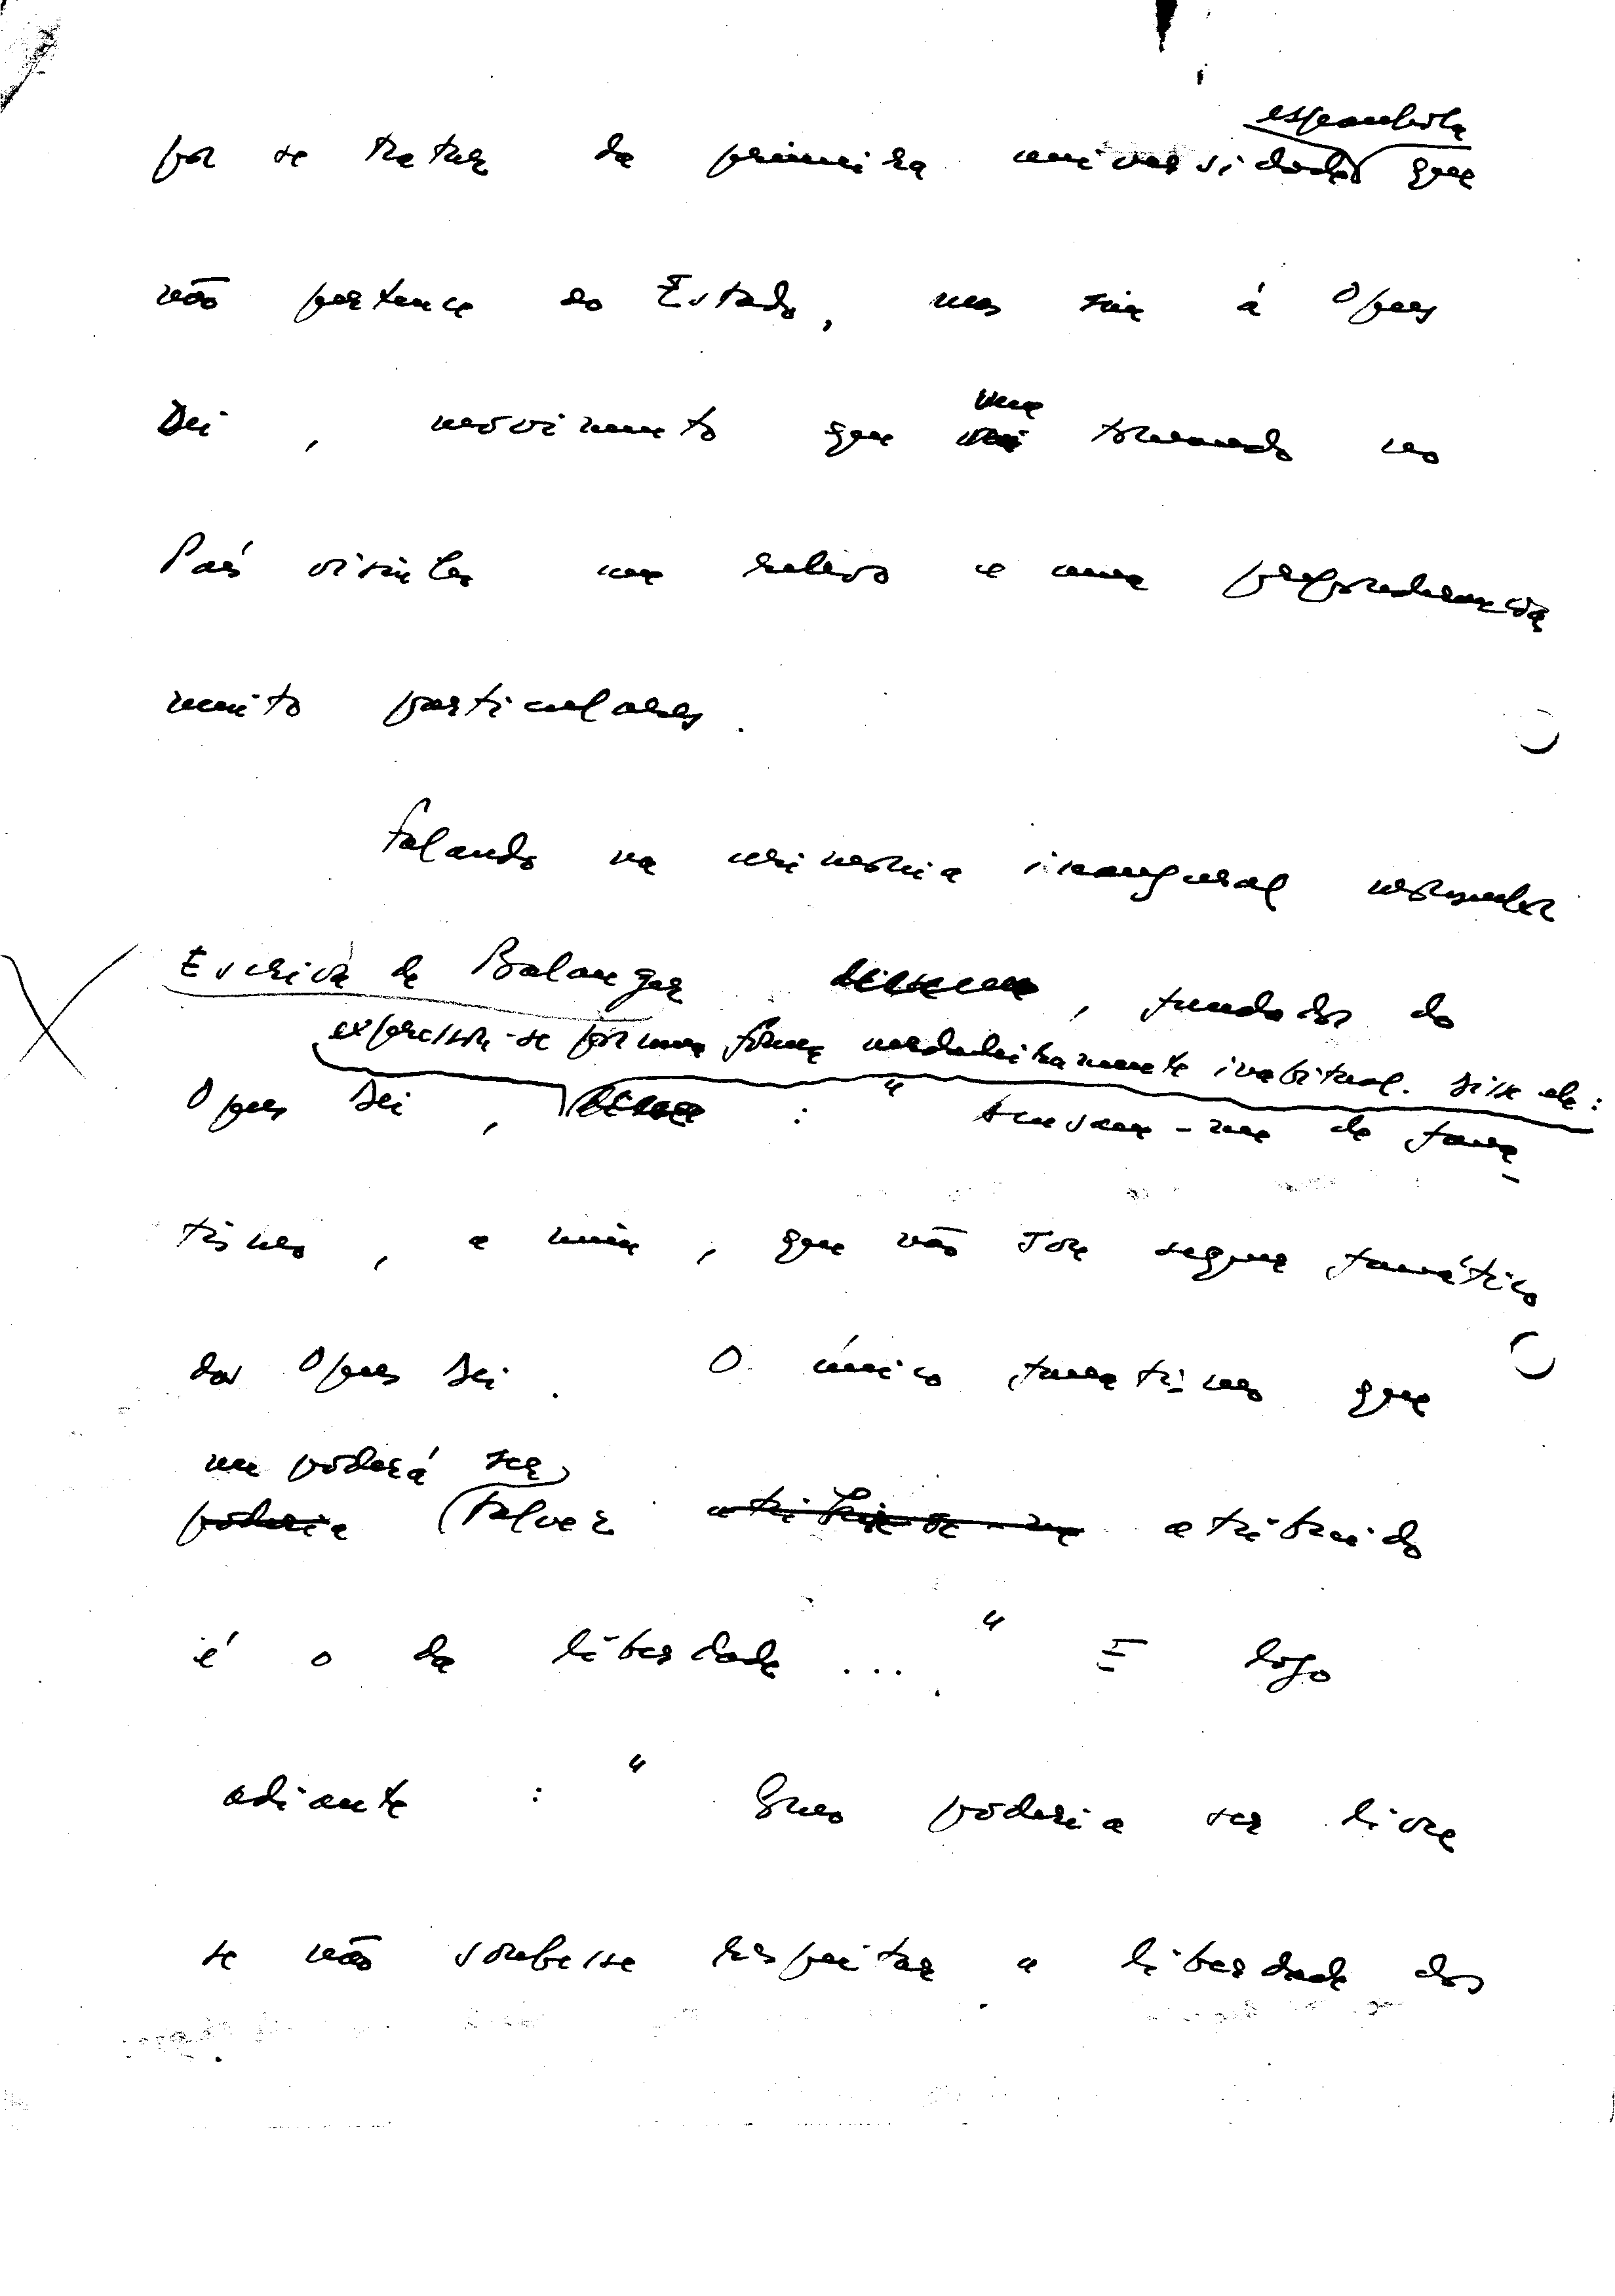 espanhola
por se tratar da primeira universidade que
não pertence ao Estado, mas sim à Opus
vem
Dei, movimento que tomando no
País visinho um relevo e uma preponderancia
muito particulares.
Falando na cerimonia inaugural monsenhor
Escrivá de Balaguer, fundador do
expressou-se por uma forma verdadeiramente inabitual. Disse ele:
Opus Dei, : " Acusam-me de fana-
tismo, a mim, que não sou sequer fanático
do Opus Dei. O único fanatismo que
me poderá ser
poderia talvez atribuido
é o da liberdade ... " E logo
adiante : " Quem poderia ser livre
se não soubesse respeitar a liberdade dos